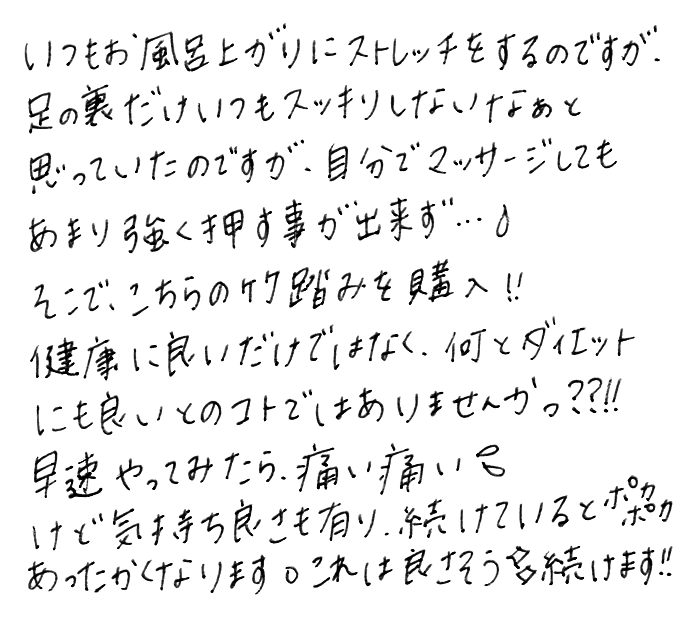 いつもお風呂上がりにストレッチをするのですが、
足の裏だけいつもスッキリしないなぁと
思っていたのですが、自分でマッサージしても
あまり強く押す事が出来ず…
そこで、こちらのケケ踏みを購入!!
健康に良いだけではなく、何とダイエット
にも良いとのコトではありませんかっ??!!
早速やってみたら、痛い痛い
けど気持ち良さも有り、続けているとポカポカ
あったかくなります。これは良さそう☆続けます!!